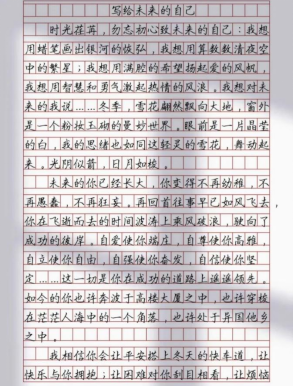 写给未来的自己
时光荏苒，勿忘初心致未来的自己：我想
用蜡笔画出银河的恢弘，我想用算数数清夜空
中的繁星；我想用满腔的希望扬起爱的风帆，
我想用智慧和勇气激起热情的风浪。我想对未
来的我说……冬季，雪花翩然飘向大地，窗外
是一个粉妆玉砌的曼妙世界。眼前是一片晶莹
的白，我的思绪也如同这轻灵的雪花，舞动起
来。光阴似箭，日月如梭。
未来的你已经长大，你变得不再幼稚，不
再愚蠢，不再狂妄，再回首往事早已如风飞去，
你在飞逝而去的时间波涛上乘风破浪，驶向了
成功的彼岸。自爱使你端庄，自尊使你高雅，
自立使你自由，自强使你奋发，自信使你坚
定……这一切是你在成功的道路上遥遥领先。
如今的你也许奔波于高楼大厦之中，也许穿梭
在茫茫人海中的一个角落，也许处于异国他乡
之中。
我相信你会让平安搭上冬天的快车道，让
快乐与你拥抱；让困难对你刮目相看，让烦恼